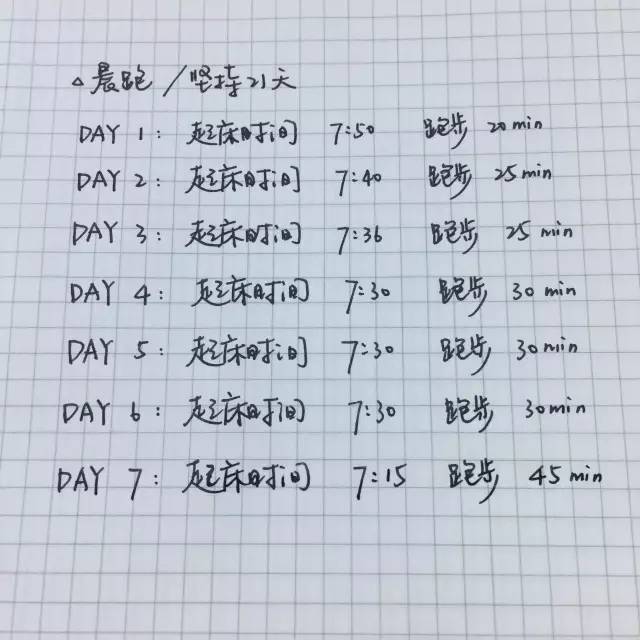 △晨跑 / 坚持21天
DAY 1: 起床时间 7:50 跑步 20min
DAY 2: 起床时间 7:40 跑步 25min
DAY 3: 起床时间 7:36 跑步 25min
DAY 4: 起床时间 7:30 跑步 30min
DAY 5: 起床时间 7:30 跑步 30min
DAY 6: 起床时间 7:30 跑步 30min
DAY 7: 起床时间 7:15 跑步 45min